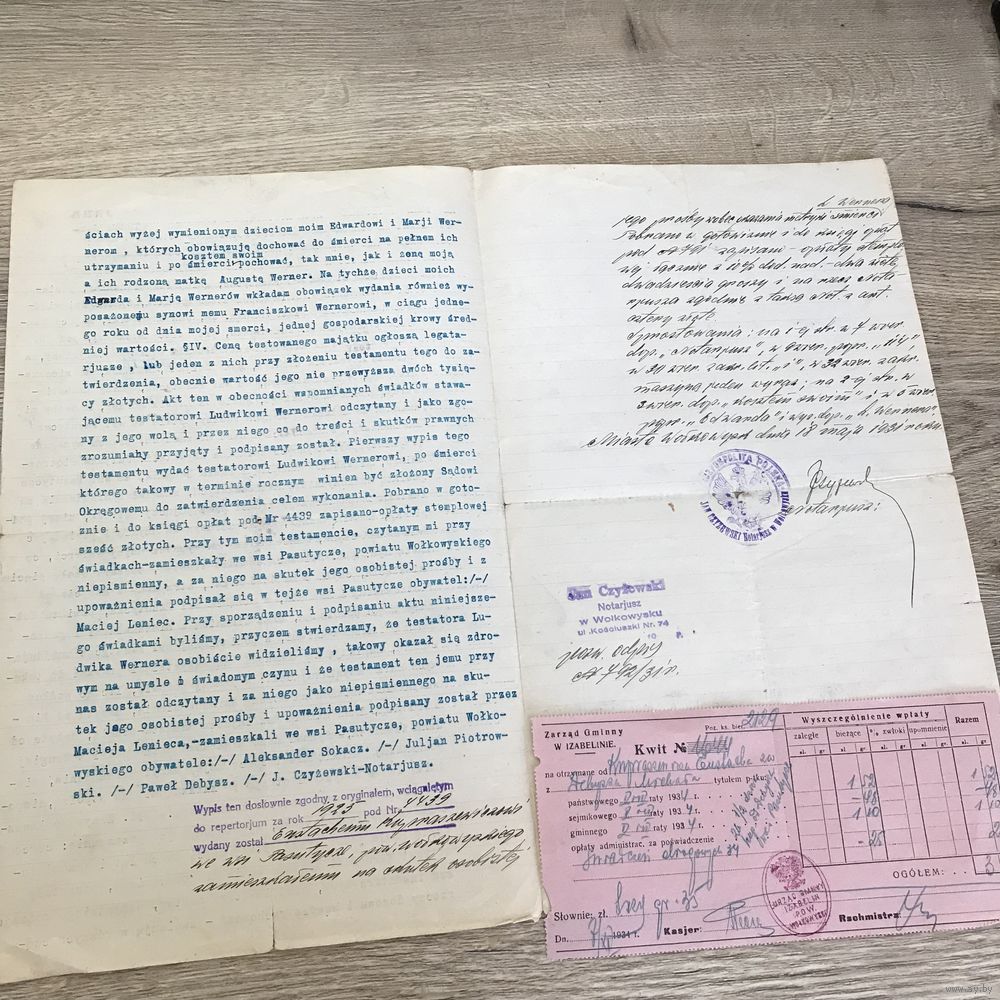 ściach wyżej wymienionym dzieciom moim Edwardowi i Marji Wer-
nerom , których obowiązują dochować do śmierci na pełnem ich
kosztem swoim
utrzymaniu i po śmierci pochować, tak mnie, jak i żonę moją
a ich rodzoną matkę Augustę Werner. Na tychże dzieci moich
Edgarda i Marję Wernerów wkładam obowiązek wydania również wy-
posażonemu synowi memu Franciszkowi Wernerowi, w ciągu jedne-
go roku od dnia mojej smerci, jednej gospodarskiej krowy śred-
niej wartości. §IV. Cenę testowanego majątku ogłoszą legata-
rjusze , lub jeden z nich przy złożeniu testamentu tego do za-
twierdzenia, obecnie wartość jego nie przewyższa dwóch tysię-
cy złotych. Akt ten w obecności wspomnianych świadków stawa-
jącemu testatorowi Ludwikowi Wernerowi odczytany i jako zgo-
ny z jego wolą i przez niego co do treści i skutków prawnych
zrozumiały przyjęty i podpisany został. Pierwszy wypis tego
testamentu wydać testatorowi Ludwikowi Wernerowi, po śmierci
którego takowy w terminie rocznym winien być złożony Sądowi
Okręgowemu do zatwierdzenia celem wykonania. Pobrano w goto-
znie i do księgi opłat pod Nr 4439 zapisano-opłaty stemplowej
sześć złotych. Przy tym moim testamencie, czytanym mi przy
świadkach-zamieszkały we wsi Pasutycze, powiatu Wołkowyskiego
niepismienny, a za niego na skutek jego osobistej prośby i z
upoważnienia podpisał się w tejże wsi Pasutycze obywatel:/-/
Maciej Leniec. Przy sporządzeniu i podpisaniu aktu niniejsze-
go świadkami byliśmy, przyczem stwierdzamy, że testatora Lu-
dwika Wernera osobiście widzieliśmy , takowy okazał się zdro-
wym na umysle i świadomym czynu i że testament ten jemu przy
nas został odczytany i za niego jako niepismiennego na sku-
tek jego osobistej prośby i upoważnienia podpisany został przez
Macieja Lenieca,-zamieszkali we wsi Pasutycze, powiatu Wołko-
wyskiego obywatele:/-/ Aleksander Sokacz. /-/ Juljan Piotrow-
ski. /-/ Paweł Debysz. /-/ J. Czyżewski-Notarjusz.
Wypis ten dosłownie zgodny z oryginałem, wciągniętym
do repertorjum za rok 1925 pod Nr 4439
wydany został Eustachemu
we wsi Pasutycze, pow. wołkowyskiego
zamieszkałemu na skutek osobistej
L. Wernera
jego prośby wobec okazania metryki śmierci
Pobrano w gotowiźnie i do księgi opłat
pod zapisano - opłaty stemplo
wej łącznie z 10% dod. nad. dwa złote
dwadzieścia groszy i na rzecz nota
rjusza zgodnie z taksą
cztery złote
na 1-ej str. w 7 wier.
dop. "Notarjusz", w
w 30 wier. lit. "i", w 32 wier.
maszyną jeden wyraz; na 2-ej str. w
3 wier. dop. "kosztem swoim" i w 5 wier.
popr. i dop. "L. Wernera"
Miasto Wołkowysk dnia 18 maja 1931 roku.
Notarjusz:
JAN CZYŻEWSKI Notarjusz w Wołkowysku
Jan Czyżewski
Notarjusz
w Wołkowysku
ul. Kościuszki Nr. 74
№ 792/31 r.
Zarząd Gminny
W IZABELINIE.
Poz. ks. bier. 2129
Kwit №
na otrzymane od Eustacha za
z tytułem podatku:
państwowego raty 1934 r.
sejmikowego raty 1934 r.
gminnego raty 1934 r.
opłaty administrac. za poświadczenie
Wyszczególnienie wpłaty
Razem
zaległe
bieżące
% zwłoki
upomnienie
zł. gr. zł. gr. zł. gr. zł. gr. zł. gr.
25
OGÓŁEM:
Słownie: zł. trzy gr. 35
Dn. 1934 r.
Kasjer:
Rachmistrz:
URZĄD GMINY
IZABELIN
POW.
WOŁKOWYSK
www.ay.by